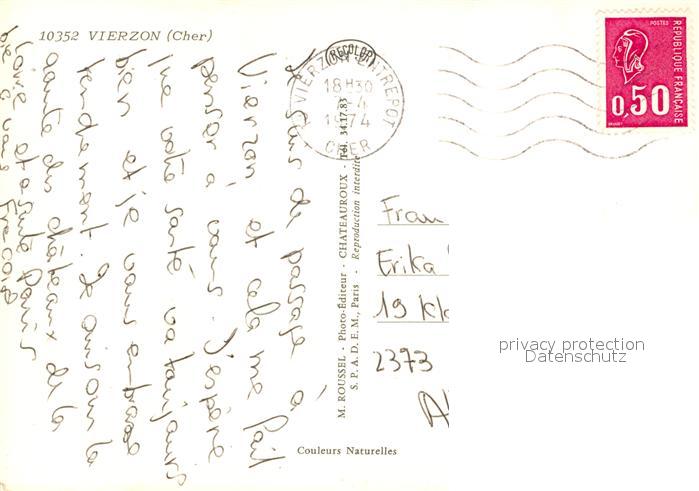 10352 VIERZON (Cher)
Je suis de passage à
Vierzon et cela me fait
penser à vous. J'espère
que votre santé va toujours
bien et je vous embrasse
tendrement. Je suis sur la
route des châteaux de la
Loire et ensuite Paris
bie à vous François
VIERZON ENTREPOT
18H30
-4
1974
CHER
(RECOLOR)
M. ROUSSEL - Photo-Éditeur - CHATEAUROUX - Tél. 34.17.83
S.P.A.D.E.M., Paris. - Reproduction interdite
POSTES
RÉPUBLIQUE FRANÇAISE
0,50
BEQUET
Frau
Erika
19 Kl
2373
A
privacy protection
Datenschutz
Couleurs Naturelles